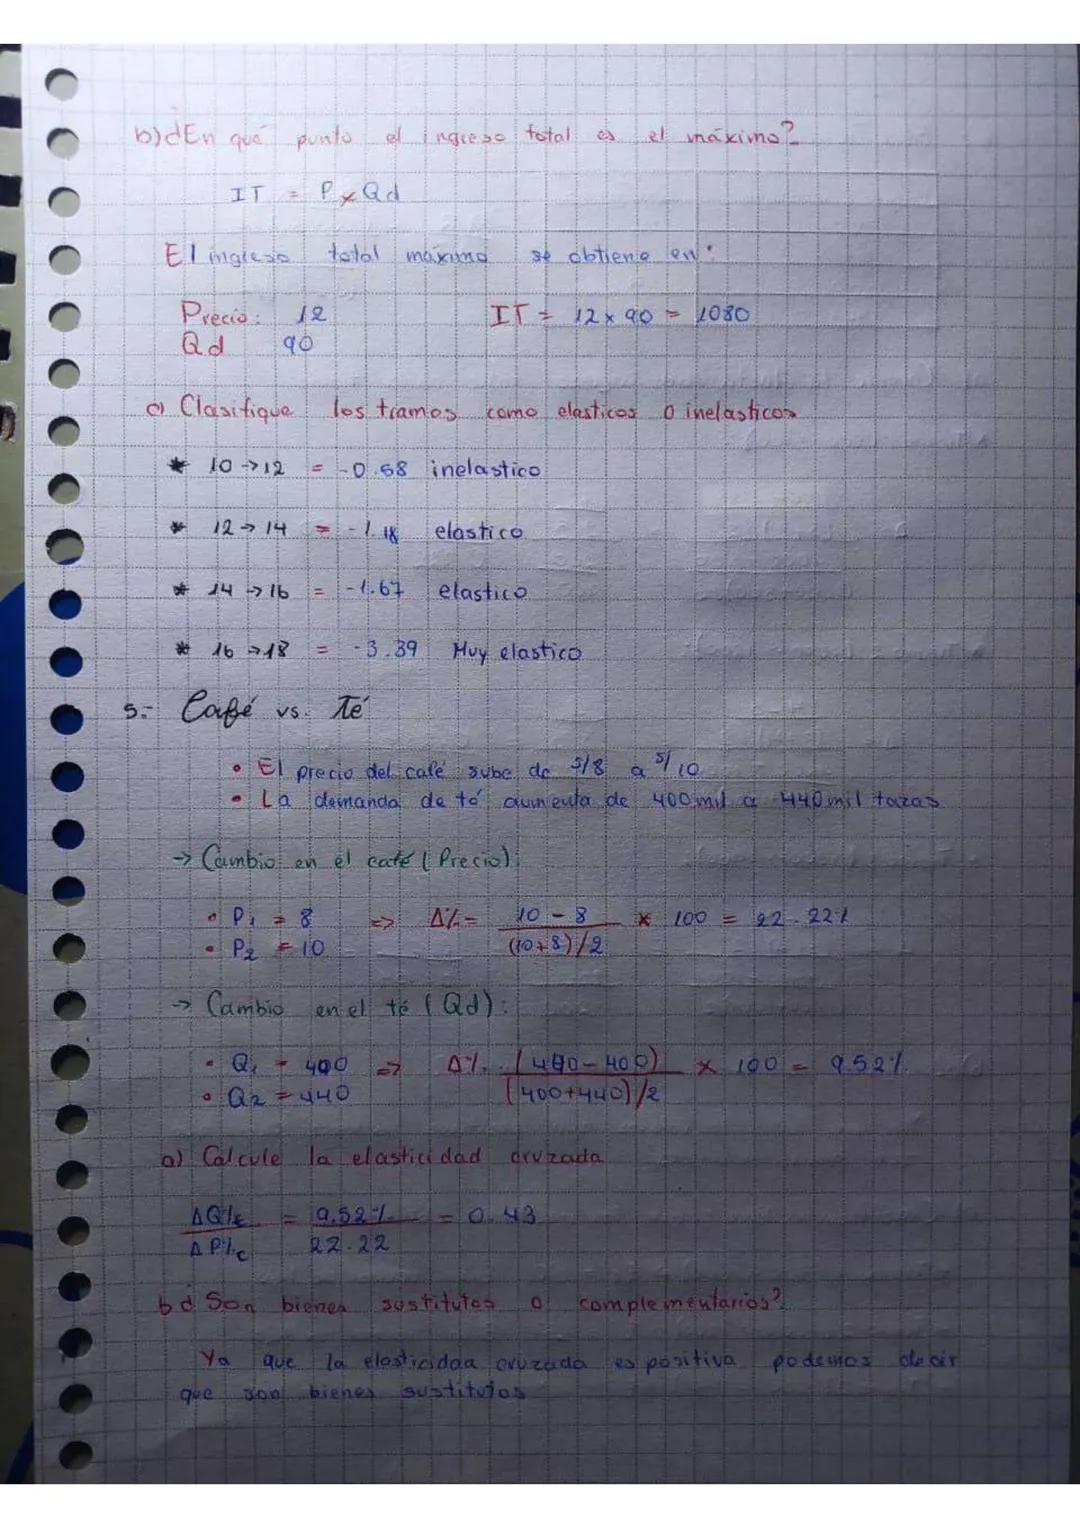 b) ¿En qué punto el ingreso total es el máximo?
IT = P x Qd
El ingreso total maximo se obtiene en:
Precio: 12 IT = 12 x 90 = 1080
Qd 90
c) Clasifique los tramos como elasticos o inelasticos
* 10 → 12 = -0.58 inelastico
* 12 → 14 = -1.18 elastico
* 14 → 16 = -1.67 elastico
* 16 → 18 = -3.39 Muy elastico
5.- Café vs. Té
• El precio del café sube de S/8 a S/10
• La demanda de té aumenta de 400 mil a 440 mil tazas
→ Cambio en el café (Precio):
• P1 = 8 => Δ% = 10 - 8 x 100 = 22.22%
• P2 = 10 (10+8)/2
→ Cambio en el té (Qd):
• Q1 = 400 => Δ% (440-400) x 100 = 9.52%
• Q2 = 440 (400+440)/2
a) Calcule la elasticidad cruzada
ΔQ%t = 9.52% = 0.43
ΔP%c 22.22
b ¿ Son bienes sustitutos o complementarios?
Ya que la elasticidad cruzada es positiva podemos decir
que son bienes sustitutos